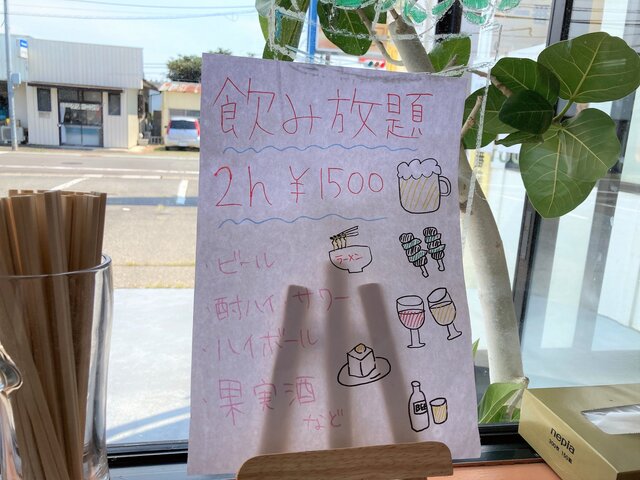 飲み放題
2h ¥1500
・ビール
ラーメン
・酎ハイ サワー
・ハイボール
・果実酒
など
nepia